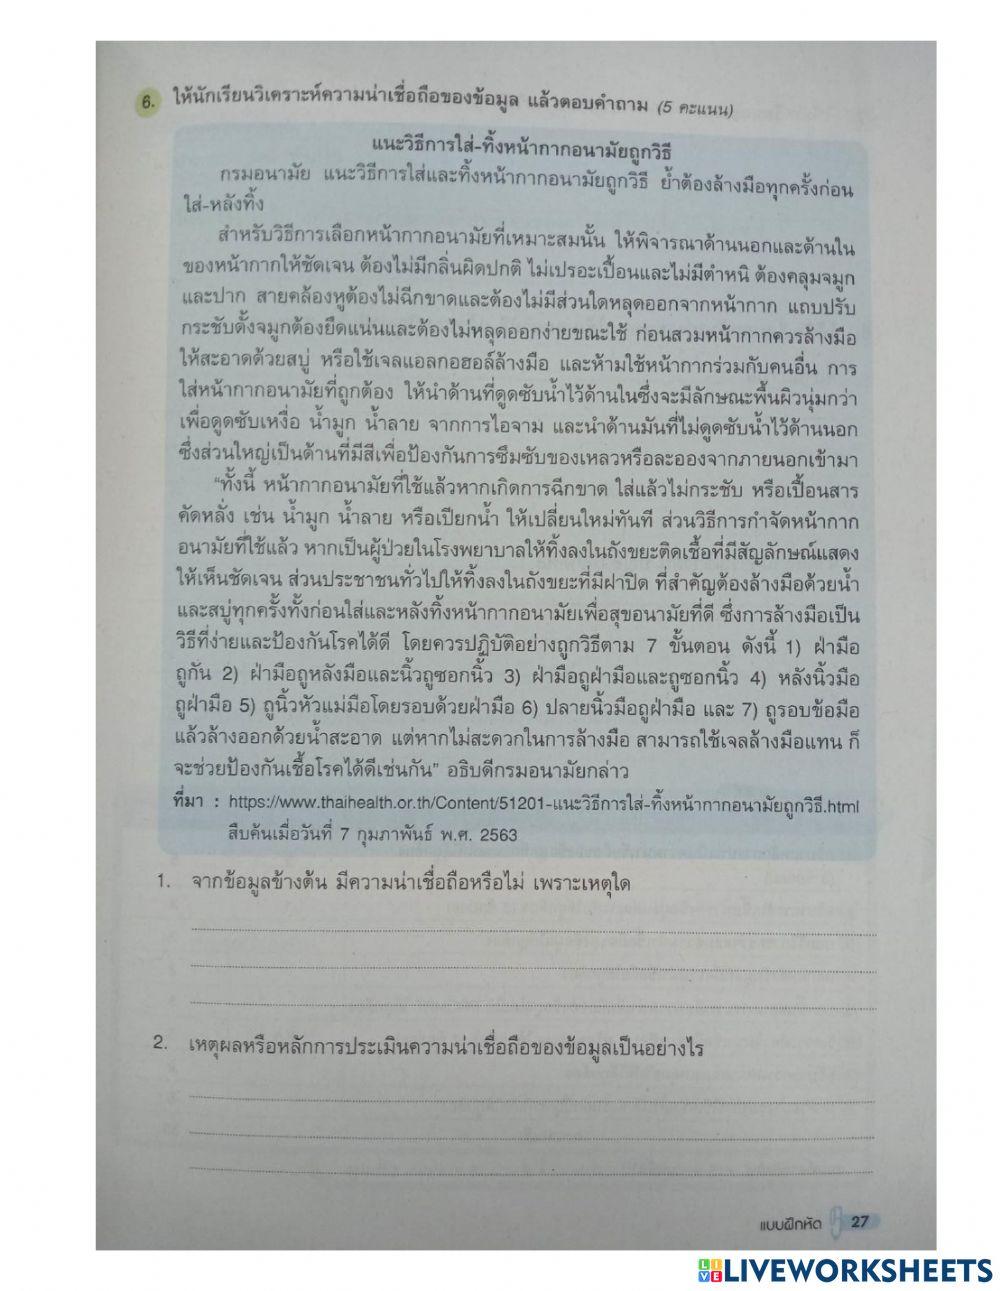 6. ให้นักเรียนวิเคราะห์ความน่าเชื่อถือของข้อมูล แล้วตอบคำถาม (5 คะแนน)
แนะวิธีการใส่-ทิ้งหน้ากากอนามัยถูกวิธี
กรมอนามัย แนะวิธีการใส่และทิ้งหน้ากากอนามัยถูกวิธี ย้ำต้องล้างมือทุกครั้งก่อน
ใส่-หลังทิ้ง
สำหรับวิธีการเลือกหน้ากากอนามัยที่เหมาะสมนั้น ให้พิจารณาด้านนอกและด้านใน
ของหน้ากากให้ชัดเจน ต้องไม่มีกลิ่นผิดปกติ ไม่เปรอะเปื้อนและไม่มีตำหนิ ต้องคลุมจมูก
และปาก สายคล้องหูต้องไม่ฉีกขาดและต้องไม่มีส่วนใดหลุดออกจากหน้ากาก แถบปรับ
กระชับดั้งจมูกต้องยึดแน่นและต้องไม่หลุดออกง่ายขณะใช้ ก่อนสวมหน้ากากควรล้างมือ
ให้สะอาดด้วยสบู่ หรือใช้เจลแอลกอฮอล์ล้างมือ และห้ามใช้หน้ากากร่วมกับคนอื่น การ
ใส่หน้ากากอนามัยที่ถูกต้อง ให้นำด้านที่ดูดซับน้ำไว้ด้านในซึ่งจะมีลักษณะพื้นผิวนุ่มกว่า
เพื่อดูดซับเหงื่อ น้ำมูก น้ำลาย จากการไอจาม และนำด้านมันที่ไม่ดูดซับน้ำไว้ด้านนอก
ซึ่งส่วนใหญ่เป็นด้านที่มีสีเพื่อป้องกันการซึมซับของเหลวหรือละอองจากภายนอกเข้ามา
“ทั้งนี้ หน้ากากอนามัยที่ใช้แล้วหากเกิดการฉีกขาด ใส่แล้วไม่กระชับ หรือเปื้อนสาร
คัดหลั่ง เช่น น้ำมูก น้ำลาย หรือเปียกน้ำ ให้เปลี่ยนใหม่ทันที ส่วนวิธีการกำจัดหน้ากาก
อนามัยที่ใช้แล้ว หากเป็นผู้ป่วยในโรงพยาบาลให้ทิ้งลงในถังขยะติดเชื้อที่มีสัญลักษณ์แสดง
ให้เห็นชัดเจน ส่วนประชาชนทั่วไปให้ทิ้งลงในถังขยะที่มีฝาปิด ที่สำคัญต้องล้างมือด้วยน้ำ
และสบู่ทุกครั้งทั้งก่อนใส่และหลังทิ้งหน้ากากอนามัยเพื่อสุขอนามัยที่ดี ซึ่งการล้างมือเป็น
วิธีที่ง่ายและป้องกันโรคได้ดี โดยควรปฏิบัติอย่างถูกวิธีตาม 7 ขั้นตอน ดังนี้ 1) ฝ่ามือ
ถูกัน 2) ฝ่ามือถูหลังมือและนิ้วถูซอกนิ้ว 3) ฝ่ามือถูฝ่ามือและถูซอกนิ้ว 4) หลังนิ้วมือ
ถูฝ่ามือ 5) ถูนิ้วหัวแม่มือโดยรอบด้วยฝ่ามือ 6) ปลายนิ้วมือถูฝ่ามือ และ 7) ถูรอบข้อมือ
แล้วล้างออกด้วยน้ำสะอาด แต่หากไม่สะดวกในการล้างมือ สามารถใช้เจลล้างมือแทน ก็
จะช่วยป้องกันเชื้อโรคได้ดีเช่นกัน” อธิบดีกรมอนามัยกล่าว
ที่มา : https://www.thaihealth.or.th/Content/51201-แนะวิธีการใส่-ทิ้งหน้ากากอนามัยถูกวิธี.html
สืบค้นเมื่อวันที่ 7 กุมภาพันธ์ พ.ศ. 2563
1. จากข้อมูลข้างต้น มีความน่าเชื่อถือหรือไม่ เพราะเหตุใด
2. เหตุผลหรือหลักการประเมินความน่าเชื่อถือของข้อมูลเป็นอย่างไร
แบบฝึกหัด 27
LIVEWORKSHEETS